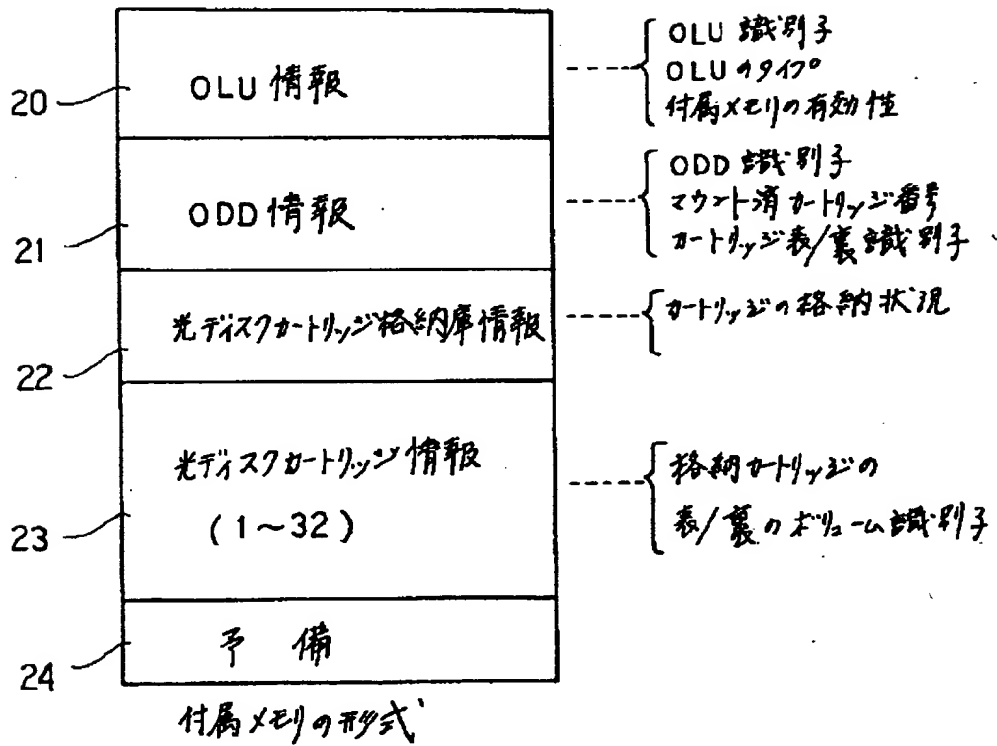 20
OLU 情報
OLU 識別子
OLU のタイプ
付属メモリの有効性
21
ODD 情報
ODD 識別子
マウント済カートリッジ番号
カートリッジ表/裏識別子
22
光ディスクカートリッジ格納庫情報
カートリッジの格納状況
23
光ディスクカートリッジ情報
(1〜32)
格納カートリッジの
表/裏のボリューム識別子
24
予 備
付属メモリの形式